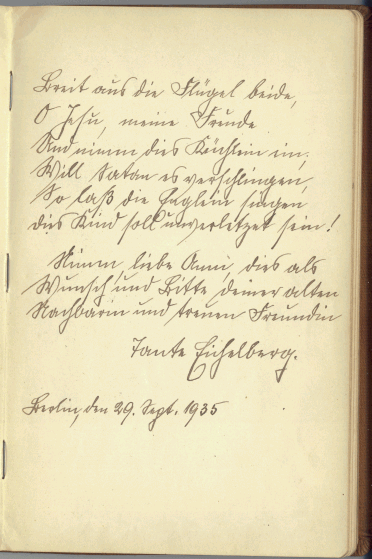 Breit aus die Flügel beide,
O Jesu, meine Freude
Und nimm dies Küchlein ein;
Will Satan es verschlingen,
So laß die Englein singen
dies Kind soll unverletzet sein!
Nimm, liebe Anni, dies als
Wunsch und Bitte deiner alten
Nachbarin und treuen Freundin
Tante Eichelberg.
Berlin, den 29. Sept. 1935